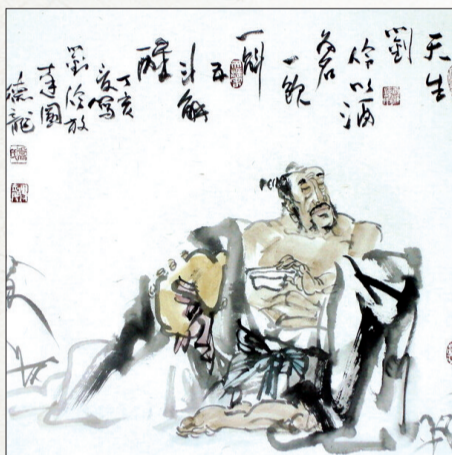 天生
劉
伶以酒
為名
一飲
一斛
五
斗解
酲
丁亥
夏寫
劉伶放
達圖
龍